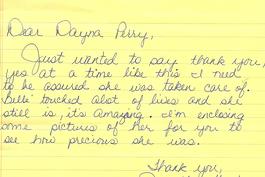 Dear Dayna Perry,
Just wanted to say thank you,
yes at a time like this I need
to be assured she was taken care of.
Billi touched alot of lives and she
still is, it's amazing. I'm enclosing
some pictures of her for you to
see how precious she was.
Thank you,